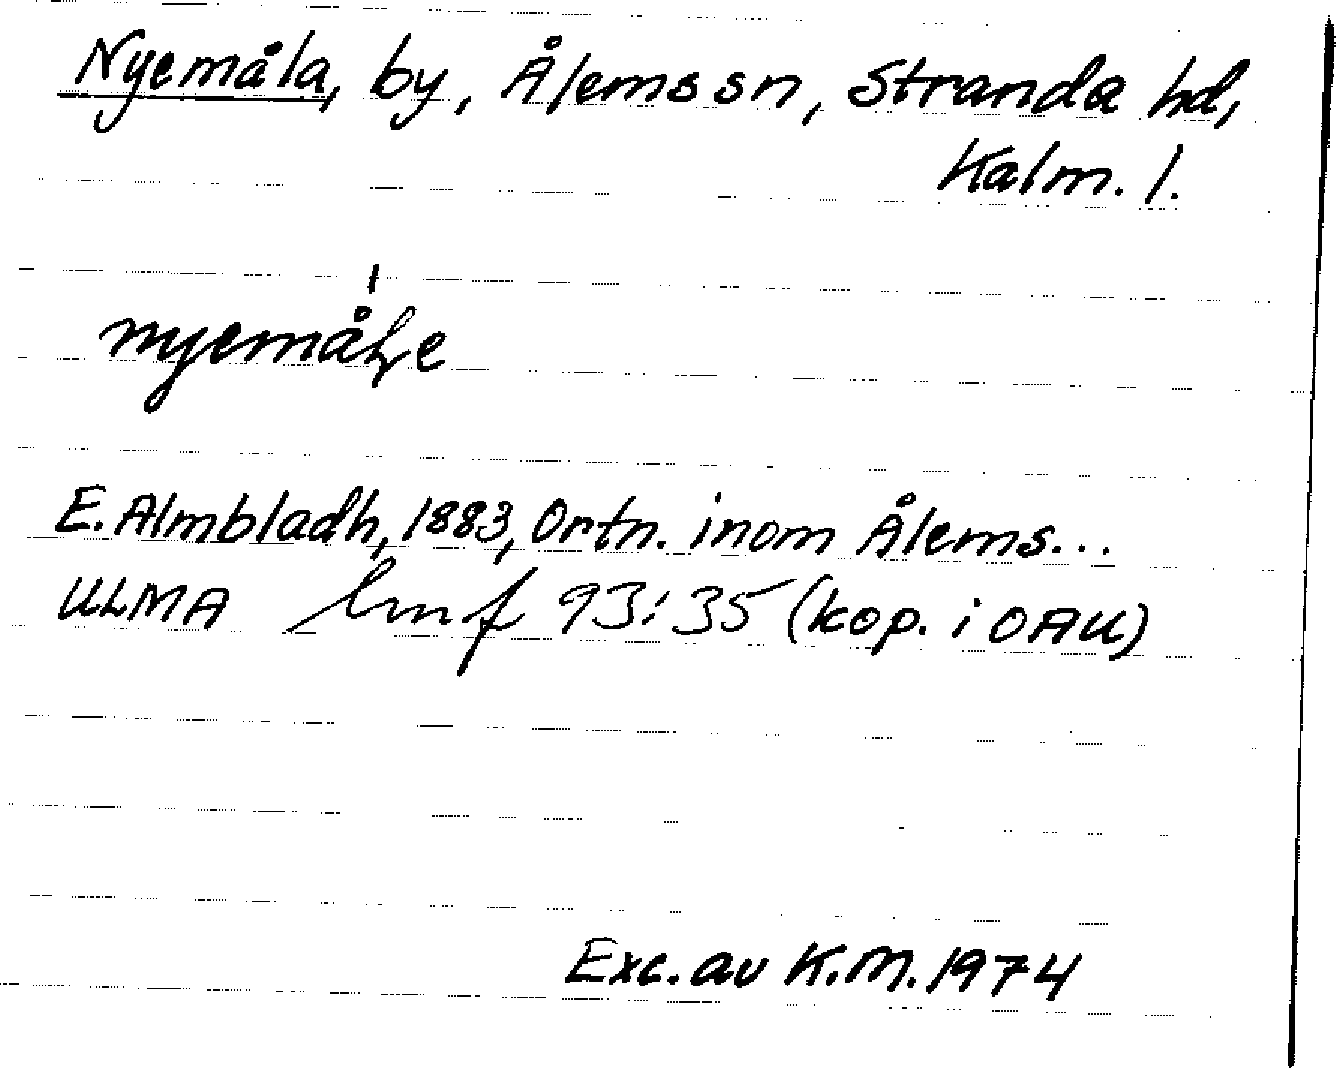 Nyemåla, by, Ålems sn, Stranda hd,
Kalm. l.
nyemåɭe
E. Almbladh, 1883, Ortn. inom Ålems...
ULMA hmf 93:35 (kop. i OAU)
Exc. av K.M. 1974